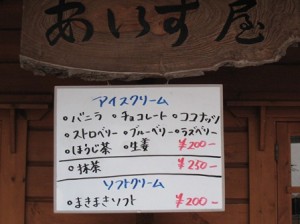 あいす屋
アイスクリーム
○バニラ ○チョコレート ○ココナッツ
○ストロベリー ○ブルーベリー ○ラズベリー
○ほうじ茶 ○生姜 ¥200-
○抹茶 ¥250-
ソフトクリーム
○まきまきソフト ¥200-